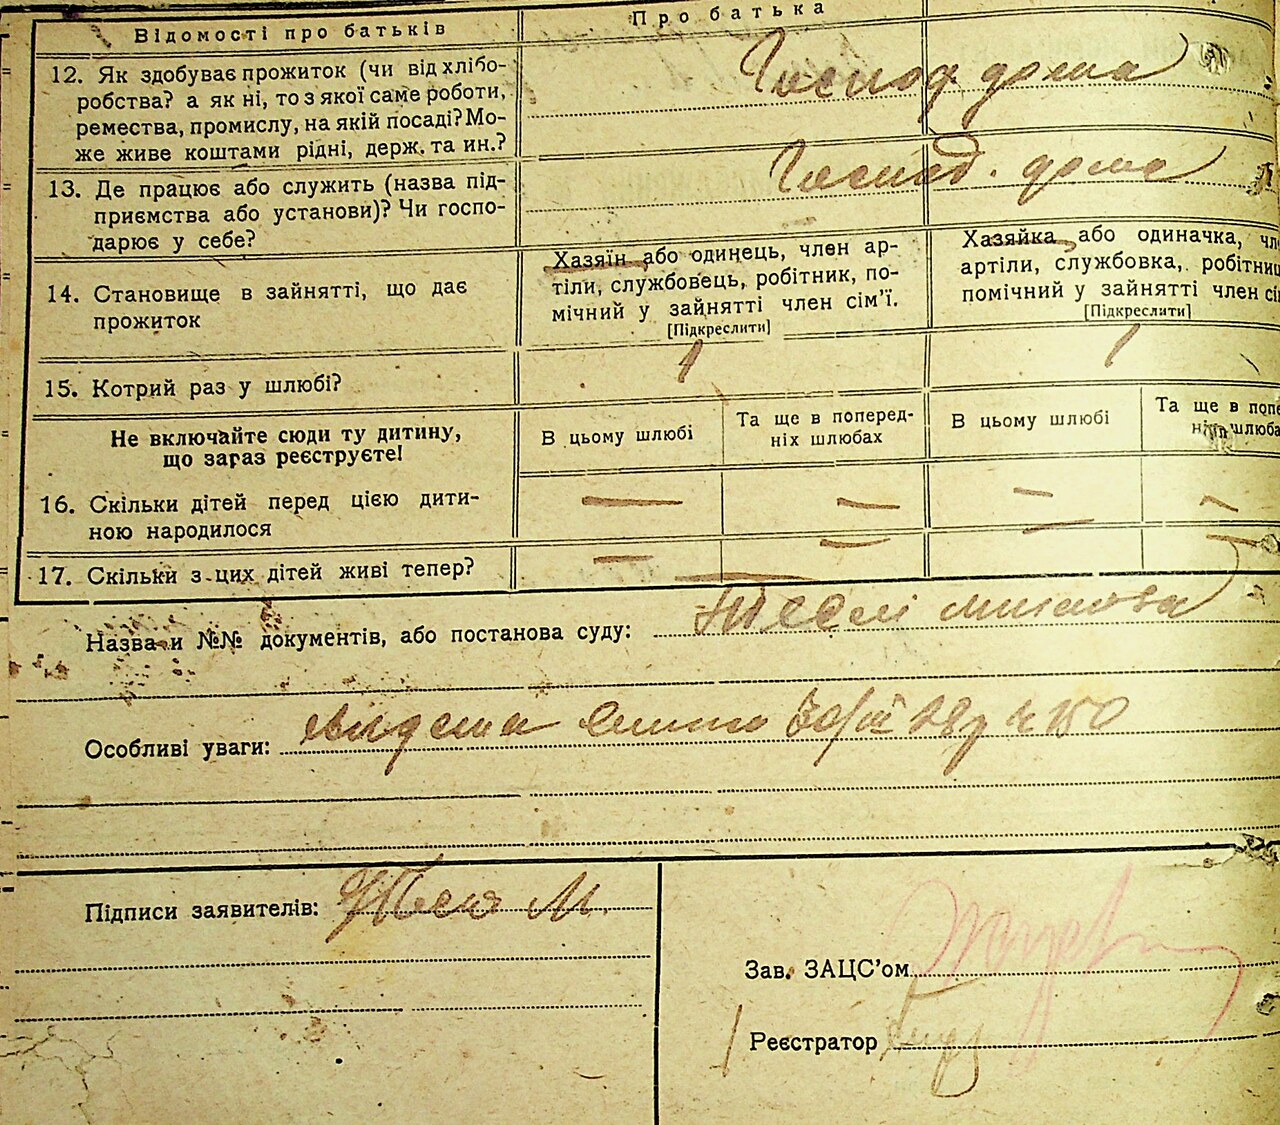 Відомості про батьків
Про батька
12. Як здобуває прожиток (чи від хлібо-
робства? а як ні, то з якої саме роботи,
ремества, промислу, на якій посаді? Мо-
же живе коштами рідні, держ. та ин.?
Господ дома
13. Де працює або служить (назва під-
приємства або установи)? Чи госпо-
дарює у себе?
Господ. дома
14. Становище в зайнятті, що дає
прожиток
Хазяїн або одинець, член ар-
тіли, службовець, робітник, по-
мічний у зайнятті член сім'ї.
[Підкреслити]
Хазяйка або одиначка, чл
артіли, службовка, робітниц
помічний у зайнятті член сі
[Підкреслити]
15. Котрий раз у шлюбі?
1
1
Не включайте сюди ту дитину,
що зараз реєструєте!
В цьому шлюбі
Та ще в поперед-
ніх шлюбах
В цьому шлюбі
Та ще в попе
ніх шлюба
16. Скільки дітей перед цією дити-
ною народилося
— — — —
17. Скільки з цих дітей живі тепер?
— — — —
Назва и №№ документів, або постанова суду:
Особливі уваги: 150
Підписи заявителів: М.
Зав. ЗАЦС'ом
Реєстратор